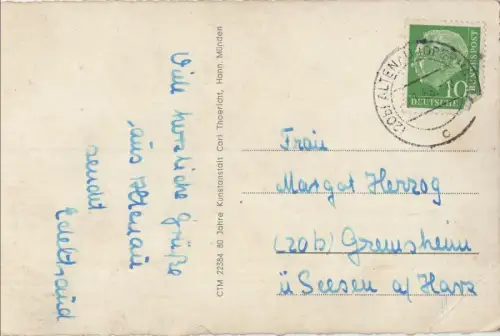 Viele herzliche Grüße
aus Altenau
sendet
Edeltraud
CTM 22384 80 Jahre Kunstanstalt Carl Thoericht, Hann. Münden
10
DEUTSCHE BUNDESPOST
(20b) ALTENAU (OBERHARZ)
c
Frau
Margot Herzog
(20b) Gremsheim
ü Seesen a/Harz